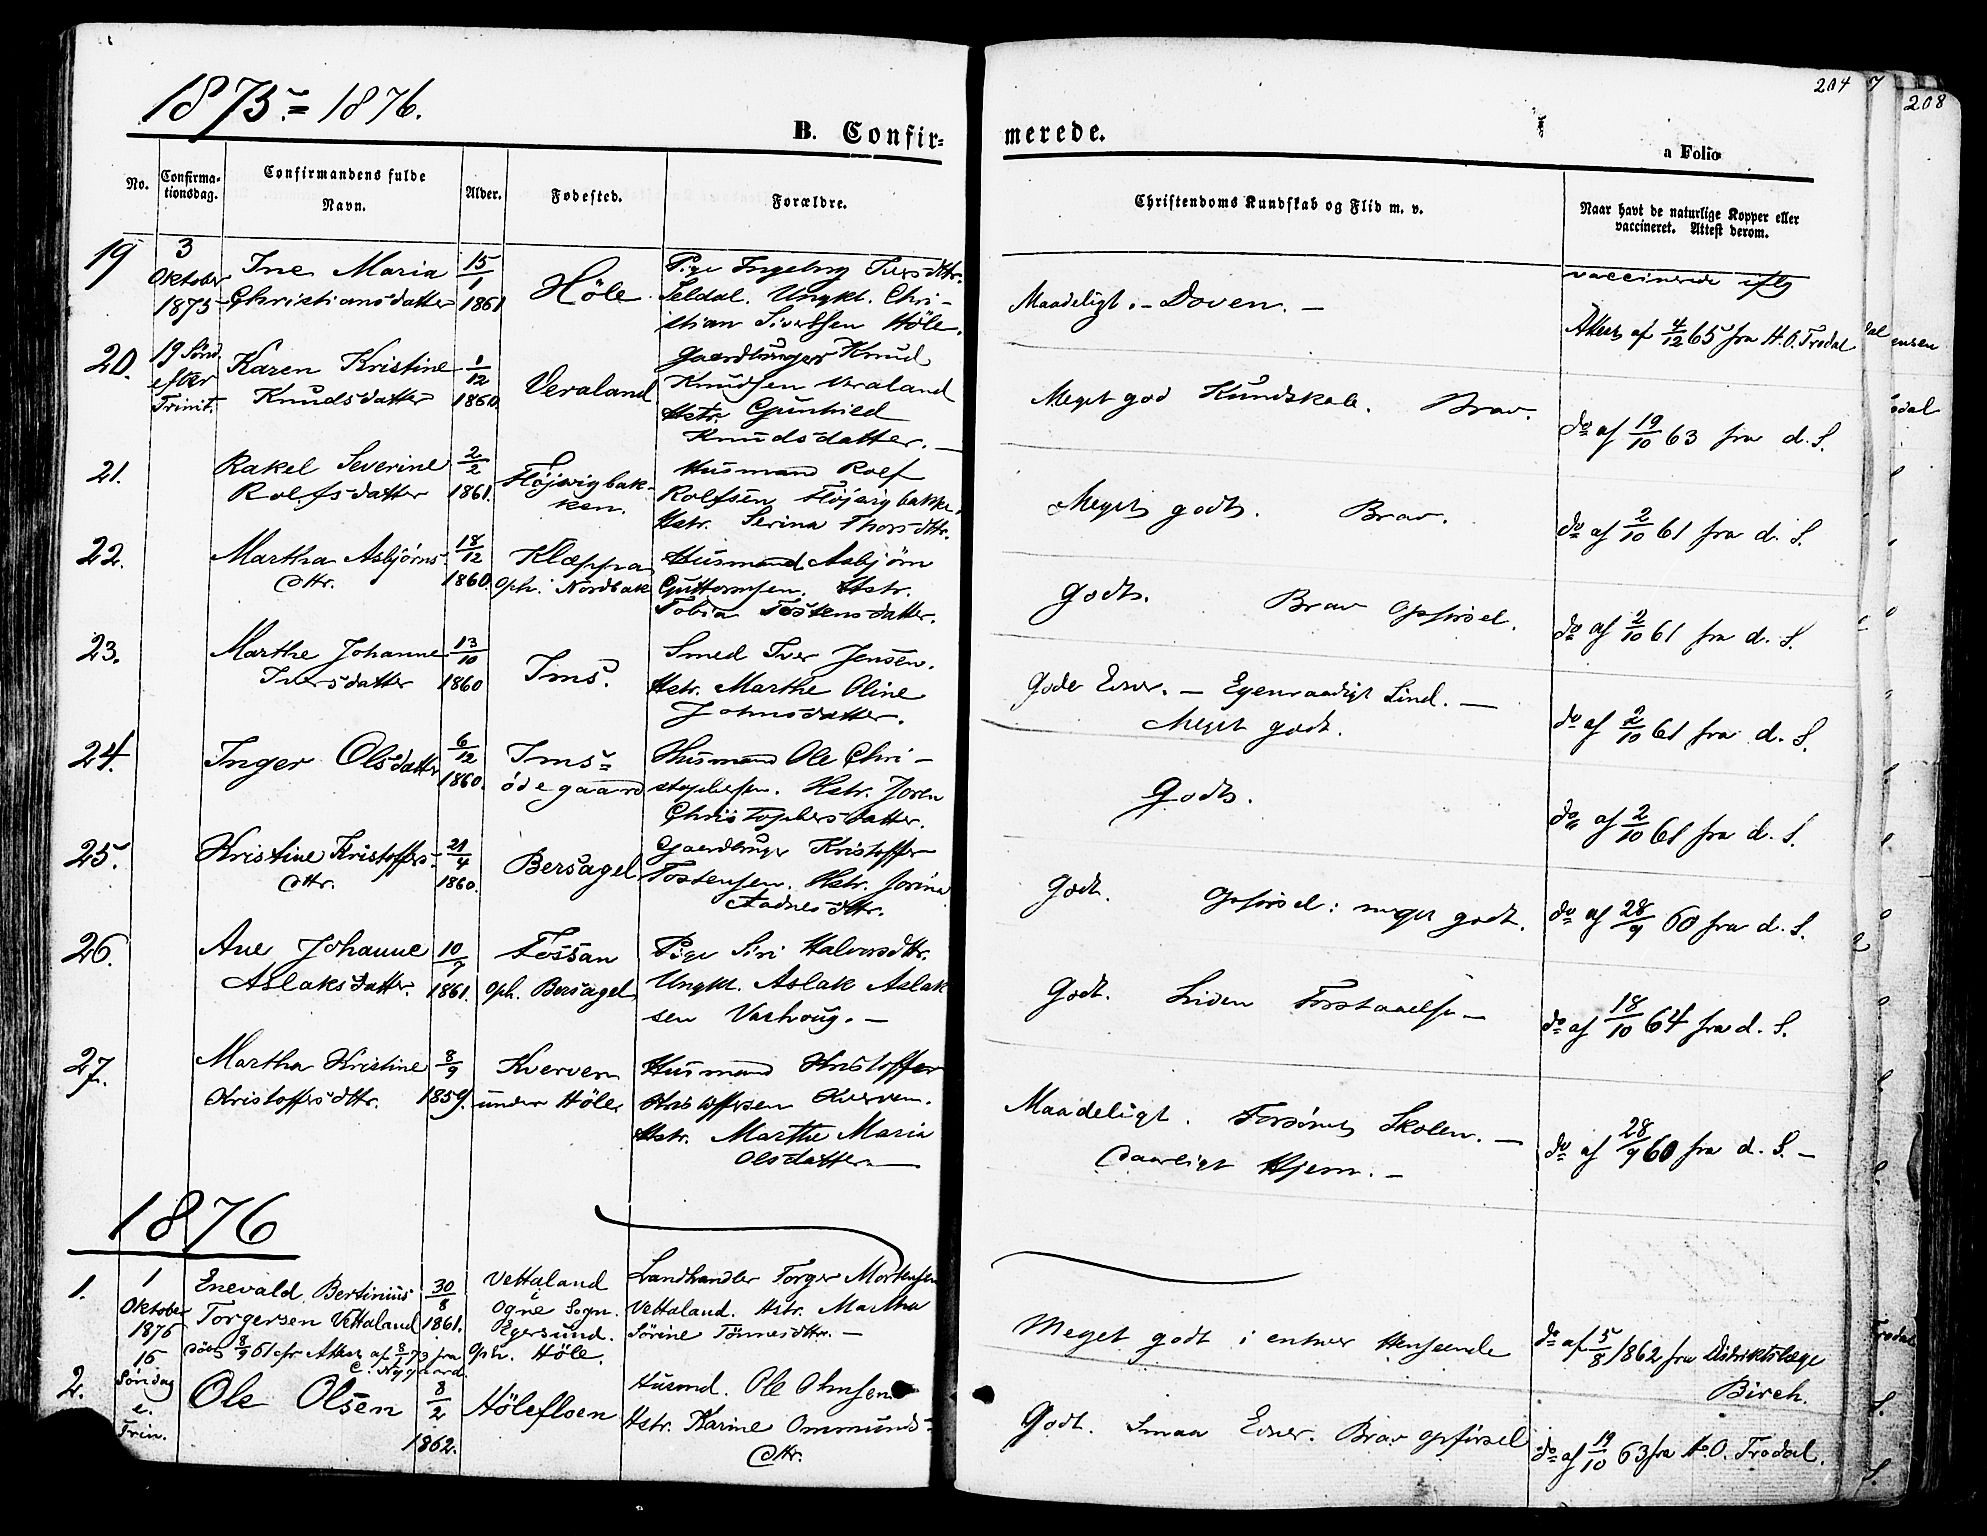 1875 = 1876.
204
7
208
B. Confir-
merede.
a Folio
No.
Confirma-
tionsdag.
Confirmandens fulde
Navn.
Alder.
Fødested.
Forældre.
Christendoms Kundskab og Flid m. v.
Naar havt de naturlige Kopper eller
vaccineret. Attest derom.
19
3
Oktober
1875
Ine Maria
Christiansdatter
15/1
1861
Höle.
Pige Ingeborg Iversdttr.
Seldal. Ungkl. Chri-
stian Sivertsen Höle.
Maadeligt. - Doven. -
vaccinerede iflg
Attest af 4/12 65 fra H. O. Trodal
20.
19 Sönd.
efter
Trinit.
Karen Kristine
Knudsdatter
1/12
1860.
Veraland
Gaardbruger Knud
Knudsen Veraland
Hstr. Gunhild
Knudsdatter. -
Meget god Kundskab. Brav.
do af 19/10 63 fra d. S.
21.
Rakel Severine
Rolfsdatter
2/2
1861.
Höjvigbak-
ken.
Husmand Rolf
Rolfsen Höjvigbakke.
Hstr. Serina Thorsdttr.
Meget godt. Brav.
do af 2/10 61 fra d. S.
22.
Martha Asbjørns-
dttr.
18/12
1860.
Klæppa
oph. i Nordbak
Husmand Asbjörn
Guttormsen. Hstr.
Tobia Tostensdatter.
Godt. Brav Opførsel.
do af 2/10 61 fra d. S.
23.
Marthe Johanne
Iversdatter
13/10
1860
Ims.
Smed Iver Jensen.
Hstr. Marthe Oline
Johnsdatter.
Gode Evner. - Egenraadigt Sind. -
Meget godt.
do af 2/10 61 fra d. S.
24.
Inger Olsdatter
6/12
1860.
Ims=
ödegaard
Husmand Ole Chri-
stophersen. Hstr. Joren
Christophersdatter.
Godt.
do af 2/10 61 fra d. S.
25.
Kristine Kristoffers-
dttr.
21/4
1860.
Bersagel
Gaardbruger Kristoffer
Tostensen. Hstr. Jorina
Aadnesdttr.
Godt. Opførsel: meget godt.
do af 28/9 60 fra d. S.
26.
Ane Johanne
Aslaksdatter.
10/7
1861.
Fossan
oph. Bersagel
Pige Siri Halvorsdttr.
Ungkl. Aslak Aslak
sen Vashoug. -
Godt. Liden Forstaaelse -
do af 18/10 64 fra d. S.
27.
Martha Kristine
Kristoffersdttr.
8/9
1859.
Kverven
under Höle
Husmand Kristoffer
Kristoffersen Kverven.
Hstr. Marthe Maria
Olsdatter -
Maadeligt. Forsömt Skolen. -
Daarligt Hjem. -
do af 28/9 60 fra d. S. -
1876
1.
1
Oktober
1876
16
Söndag
e.
Trin.
Enevald Bertinius
Torgersen Vettaland
döbt 8/9 61 efr Attest af 8/73 fra
C. Nygaard.
30/8
1861.
Vettaland
i
Ogne Sogn.
Egersund.
oph. Höle.
Landhandler Torger Mortensen
Vettaland. Hstr. Martha
Sörine Tönnesdttr. -
Meget godt i enhver Henseende
do af 5/8 1862 fra Distriktslæge
Birch.
2.
Ole Olsen
8/2
1862.
Hölefloen
Husmd. Ole Olsen.
Hstr. Karine Ommunds-
dttr.
Godt. Smaa Evner. Brav Opførsel
do af 19/10 63 fra H. O. Trodal.